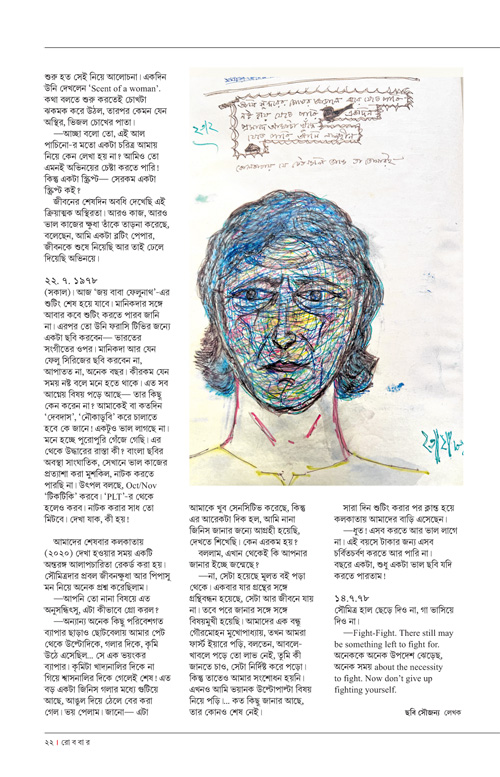 শুরু হত সেই নিয়ে আলোচনা। একদিন
উনি দেখলেন 'Scent of a woman'.
কথা বলতে শুরু করতেই চোখটা
ঝকমক করে উঠল, তারপর কেমন যেন
অস্থির, ভিজল চোখের পাতা।
—আচ্ছা বলো তো, এই আল
পাচিনো-র মতো একটা চরিত্র আমায়
নিয়ে কেন লেখা হয় না? আমিও তো
এমনই অভিনয়ের চেষ্টা করতে পারি!
কিন্তু একটা স্ক্রিপ্ট— সেরকম একটা
স্ক্রিপ্ট কই?
জীবনের শেষদিন অবধি দেখেছি এই
ক্রিয়াত্মক অস্থিরতা। আরও কাজ, আরও
ভাল কাজের ক্ষুধা তাঁকে তাড়না করেছে,
বলেছেন, আমি একটা ব্লটিং পেপার,
জীবনকে শুষে নিয়েছি আর তাই ঢেলে
দিয়েছি অভিনয়ে।
২২. ৭. ১৯৭৮
(সকাল)। আজ 'জয় বাবা ফেলুনাথ'-এর
শুটিং শেষ হয়ে যাবে। মানিকদার সঙ্গে
আবার কবে শুটিং করতে পারব জানি
না। এরপর তো উনি ফরাসি টিভির জন্যে
একটা ছবি করবেন— ভারতের
সংগীতের ওপর। মানিকদা আর যেন
ফেলু সিরিজের ছবি করবেন না,
আপাতত না, অনেক বছর। কীরকম যেন
সময় নষ্ট বলে মনে হতে থাকে। এত সব
আগ্নেয় বিষয় পড়ে আছে— তার কিছু
কেন করেন না? আমাকেই বা কতদিন
'দেবদাস', 'নৌকাডুবি' করে চালাতে
হবে কে জানে! একটুও ভাল লাগছে না।
মনে হচ্ছে পুরোপুরি গেঁজে গেছি। এর
থেকে উদ্ধারের রাস্তা কী? বাংলা ছবির
অবস্থা সাংঘাতিক, সেখানে ভাল কাজের
প্রত্যাশা করা মুশকিল, নাটক করতে
পারছি না। উৎপল বলছে, Oct/Nov
'টিকটিকি' করবে। 'PLT'-র থেকে
হলেও করব। নাটক করার সাধ তো
মিটবে। দেখা যাক, কী হয়!
আমাদের শেষবার কলকাতায়
(২০২০) দেখা হওয়ার সময় একটি
অন্তরঙ্গ আলাপচারিতা রেকর্ড করা হয়।
সৌমিত্রদার প্রবল জীবনক্ষুধা আর পিপাসু
মন নিয়ে অনেক প্রশ্ন করেছিলাম।
—আপনি তো নানা বিষয়ে এত
অনুসন্ধিৎসু, এটা কীভাবে গ্রো করল?
—অন্যান্য অনেক কিছু পরিবেশগত
ব্যাপার ছাড়াও ছোটবেলায় আমার পেট
থেকে উল্টোদিকে, গলার দিকে, কৃমি
উঠে এসেছিল... সে এক ভয়ংকর
ব্যাপার। কৃমিটা খাদ্যনালির দিকে না
গিয়ে শ্বাসনালির দিকে গেলেই শেষ! এত
বড় একটা জিনিস গলার মধ্যে গুটিয়ে
আছে, আঙুল দিয়ে ঠেলে বের করা
গেল। ভয় পেলাম। জানো— এটা
আমাকে খুব সেনসিটিভ করেছে, কিন্তু
এর আরেকটা দিক হল, আমি নানা
জিনিস জানার জন্যে আগ্রহী হয়েছি,
দেখতে শিখেছি। কেন এরকম হয়?
বললাম, এখান থেকেই কি আপনার
জানার ইচ্ছে জন্মেছে?
—না, সেটা হয়েছে মূলত বই পড়া
থেকে। একবার যার গ্রন্থের সঙ্গে
গ্রন্থিবন্ধন হয়েছে, সেটা আর জীবনে যায়
না। তবে পরে জানার সঙ্গে সঙ্গে
বিষয়মুখী হয়েছি। আমাদের এক বন্ধু
গৌরমোহন মুখোপাধ্যায়, তখন আমরা
ফার্স্ট ইয়ারে পড়ি, বলতেন, আবোল-
খাবলে পড়ে তো লাভ নেই, তুমি কী
জানতে চাও, সেটা নির্দিষ্ট করে পড়ো।
কিন্তু তাতেও আমার সংশোধন হয়নি।
এখনও আমি ভয়ানক উল্টোপাল্টা বিষয়
নিয়ে পড়ি।... কত কিছু জানার আছে,
তার কোনও শেষ নেই।
সারা দিন শুটিং করার পর ক্লান্ত হয়ে
কলকাতায় আমাদের বাড়ি এসেছেন।
—ধুত! এসব করতে আর ভাল লাগে
না। এই বয়সে টাকার জন্য এসব
চর্বিতচর্বণ করতে আর পারি না।
বছরে একটা, শুধু একটা ভাল ছবি যদি
করতে পারতাম!
১৪.৭.৭৮
সৌমিত্র হাল ছেড়ে দিও না, গা ভাসিয়ে
দিও না।
—Fight-Fight. There still may
be something left to fight for.
অনেককে অনেক উপদেশ ঝেড়েছ,
অনেক সময় about the necessity
to fight. Now don't give up
fighting yourself.
ছবি সৌজন্য লেখক
২২ | রোববার